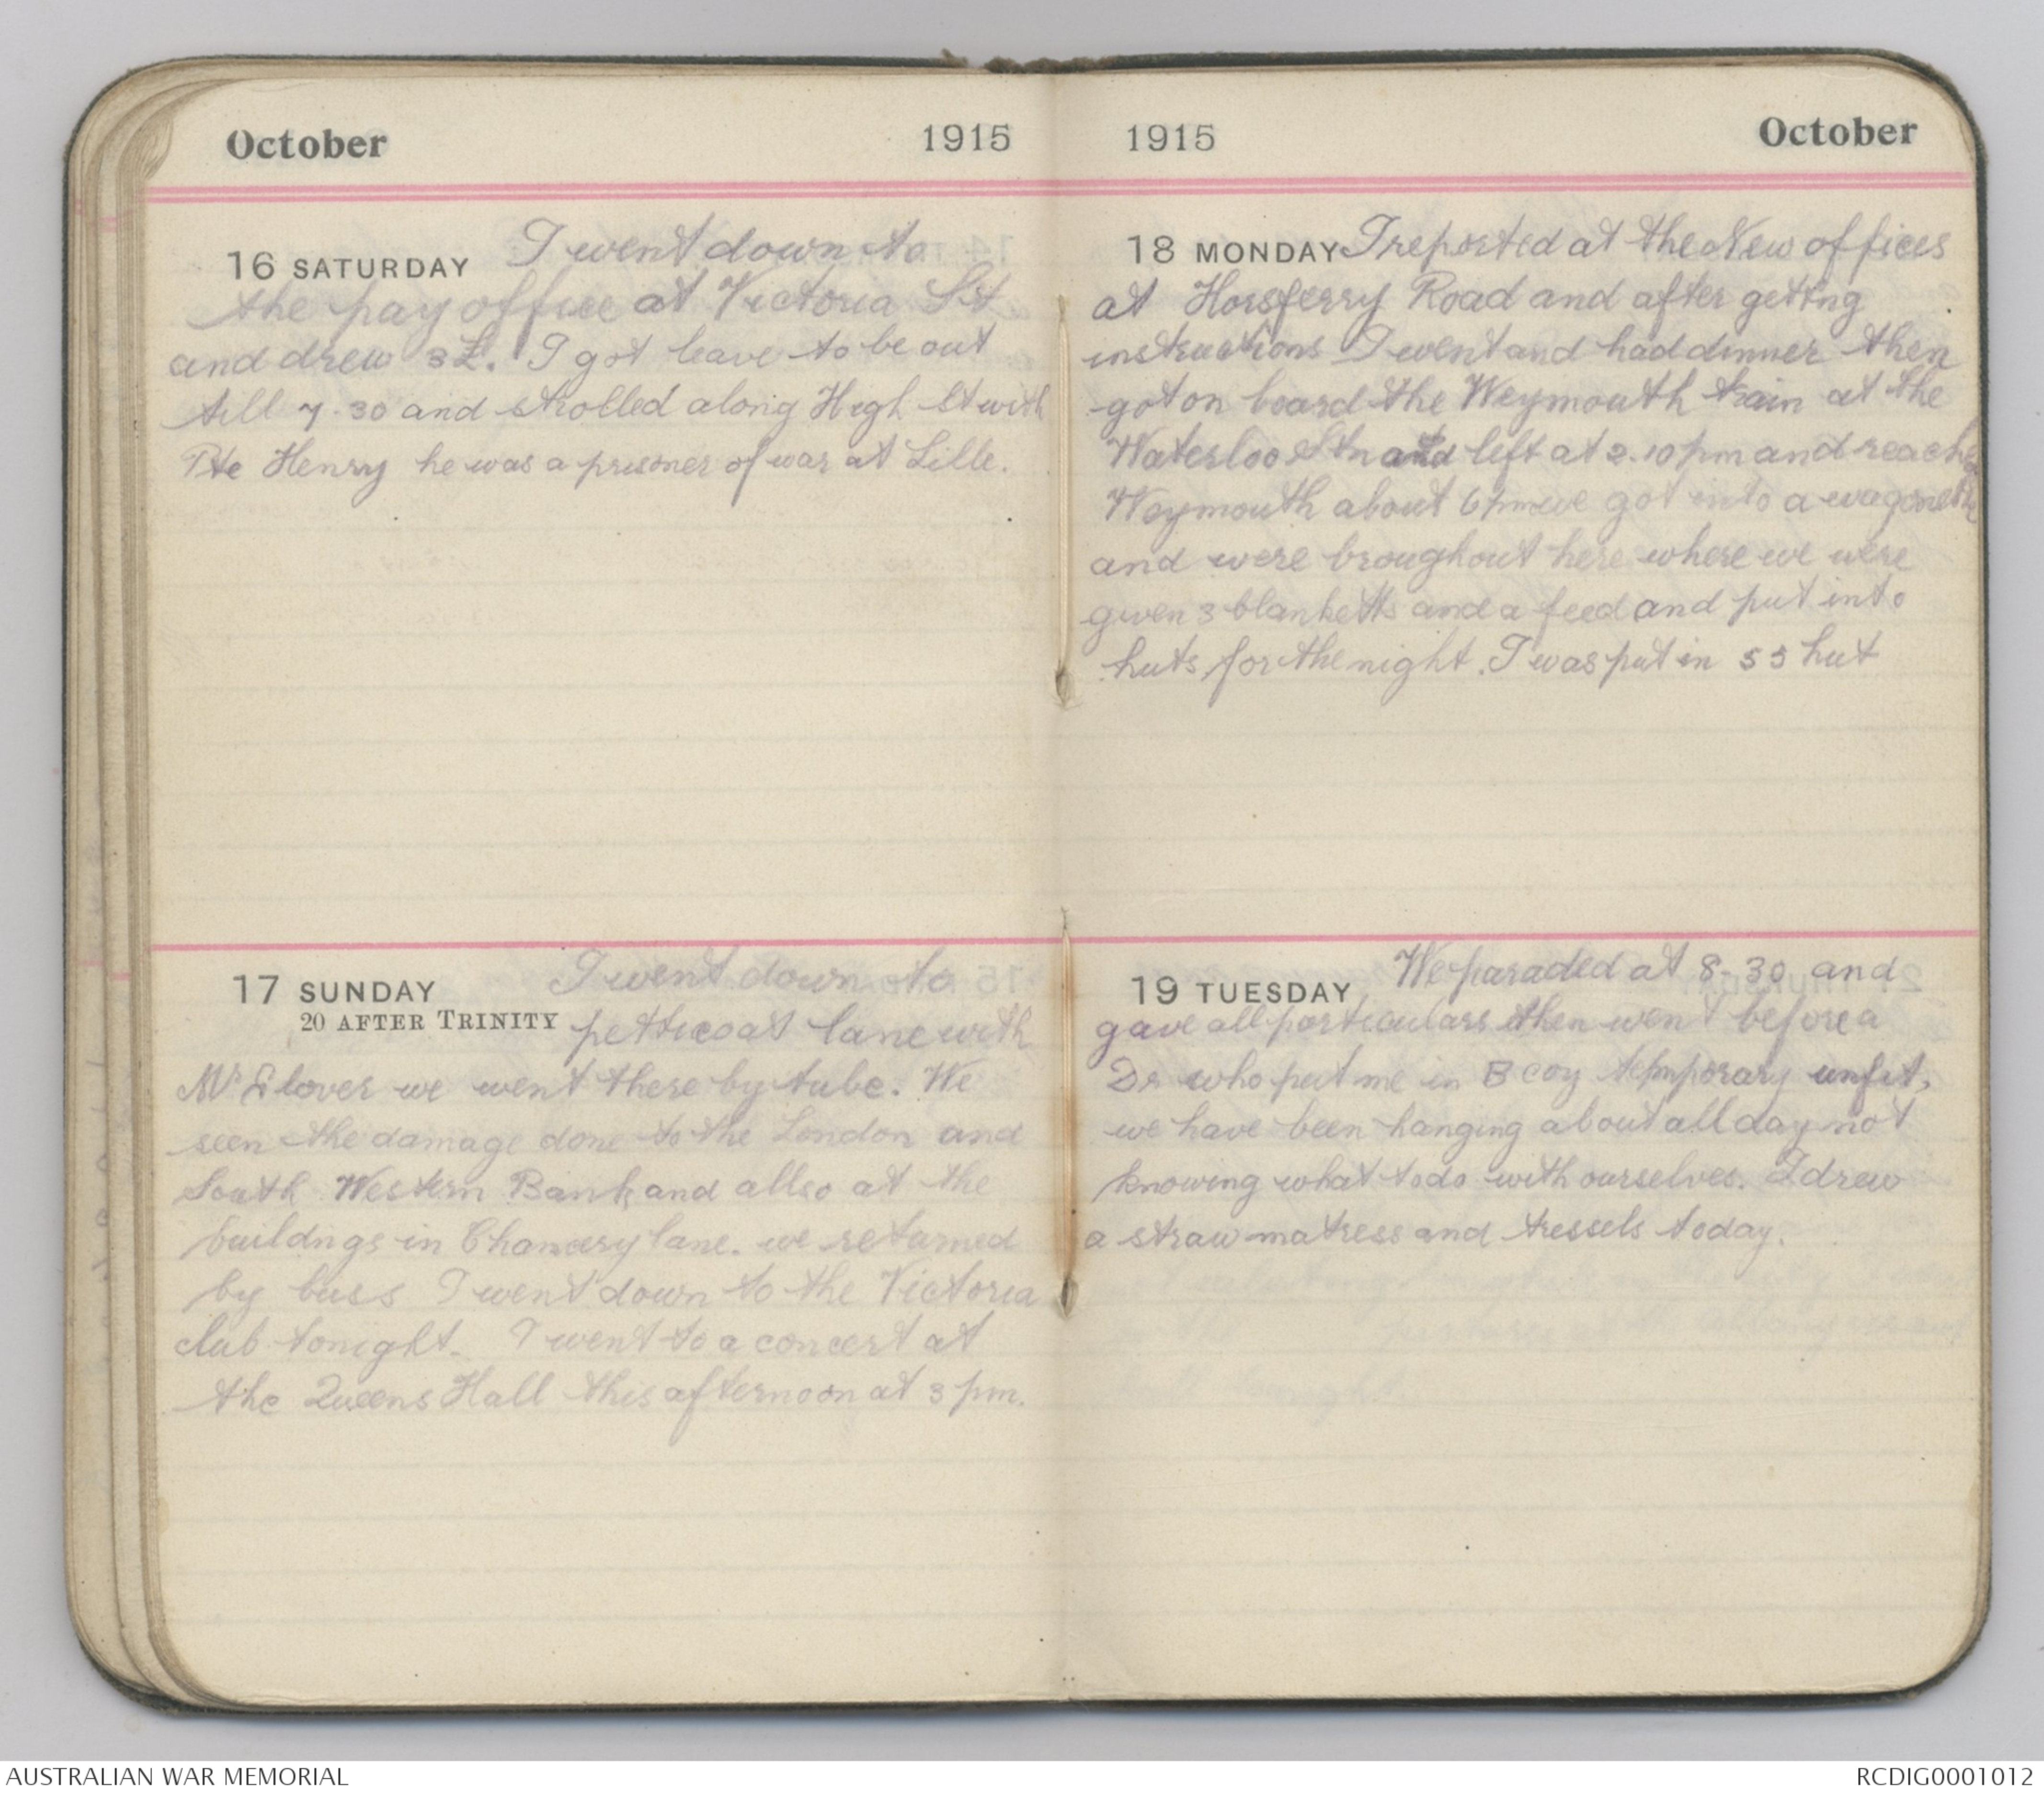 October 1915
16 SATURDAY I went down to
the pay office at Victoria St
and drew 3£. I got leave to be out
till 7.30 and strolled along High St with
Pte Henry he was a prisoner of war at Lille.
17 SUNDAY I went down to
20 AFTER TRINITY petticoat lane with
Mr Glover we went there by tube. We
seen the damage done to the London and
South Western Bank and allso at the
buildngs in Chancery lane. we returned
by buss I went down to the Victoria
club tonight. I went to a concert at
the Queens Hall this afternoon at 3 pm.
1915 October
18 MONDAY I reported at the New offices
at Horsferry Road and after gettng
instructions I went and had dinner then
got on board the Weymouth train at the
Waterloo Stn and left at 2.10 pm and reached
Weymouth about 6 pm we got into a wagonette
and were broughout here where we were
given 3 blanketts and a feed and put into
huts for the night. I was put in 55 hut
19 TUESDAY We paraded at 8-30 and
gave all particulars then went before a
Dr who put me in B coy tempporary unfit,
we have been hanging about all day not
knowing what to do with ourselves. I drew
a straw matress and tressels today.
AUSTRALIAN WAR MEMORIAL RCDIG0001012